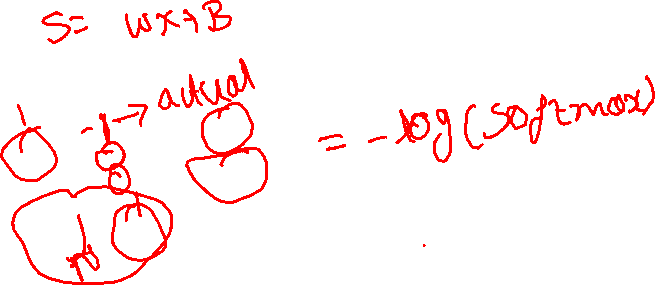 S= wx+B
→ actual
= -log(softmax)